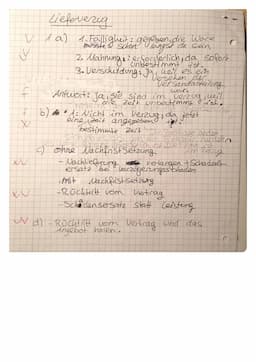 Lieferverzug
V 1 a) 1. Fälligkeit: gegeben, die Ware
könnte schon längst da sein
V 2. Mahnung: erforderlich, da sofort
unbestimmt ist.
3. Verschuldung: ja, weil es ein
Versehen der
Versandabteilung
war
f Antwort: ja, sie sind im Verzug weil
die Zeit unbestimmt ist.
f b) 1: Nicht im Verzug, da jetzt
x eine Zeit angegeben ist
bestimmte Zeit
c) ohne Nachfristsetzung
- Nachlieferung verlangen + Schadens-
ersatz bei Verzögerungsschaden
mit Nachfristsetzung
- Rücktritt vom Vertrag
- Schadensersatz statt Leistung
d) - Rücktritt vom Vertrag und das
Angebot holen.